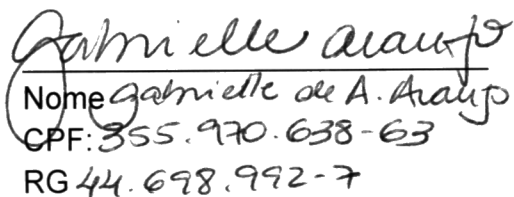 Gabrielle Araujo
Nome Gabrielle de A. Araujo
CPF: 355.970.638-63
RG 44.698.992-7